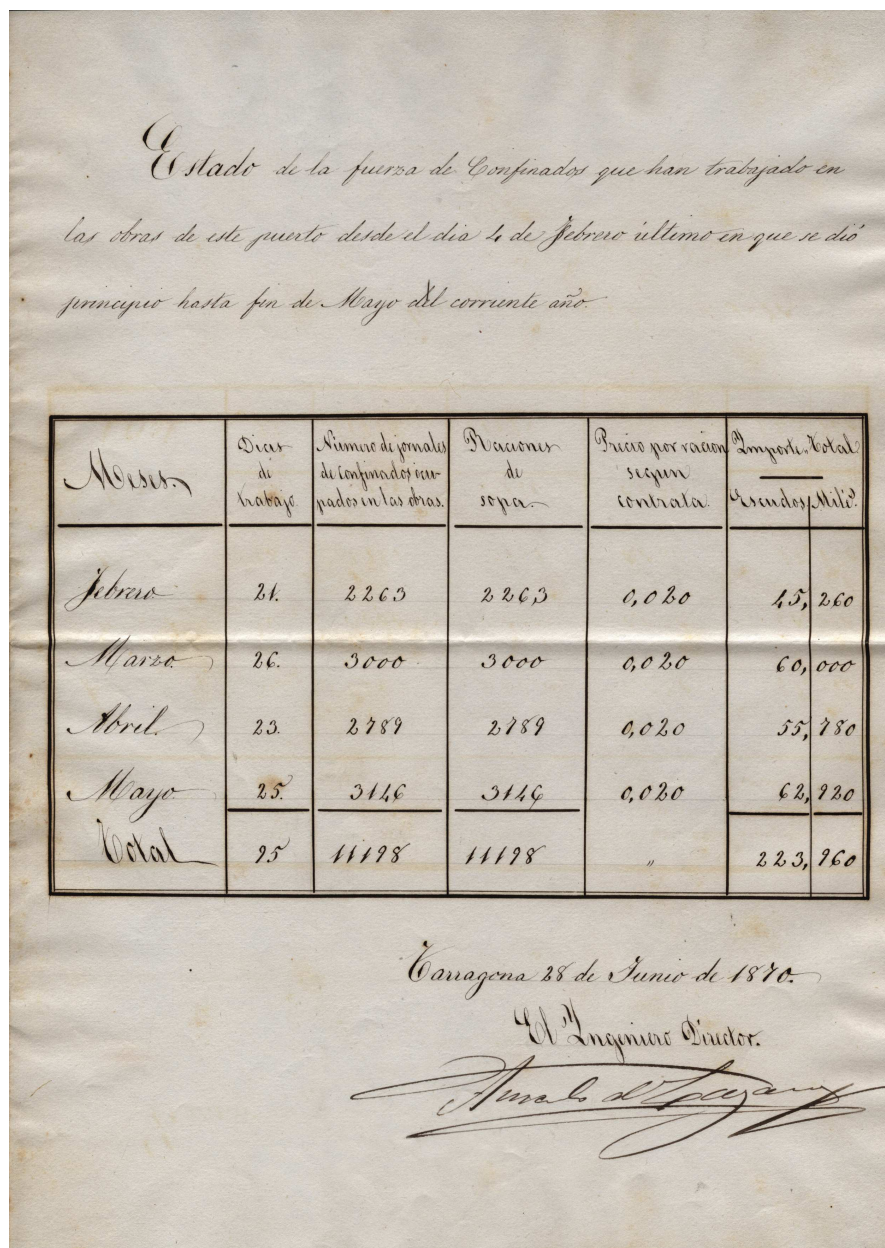 Estado de la fuerza de Confinados que han trabajado en
las obras de este puerto desde el dia 4 de Febrero último en que se dió
principio hasta fin de Mayo del corriente año.
Meses. Dias de trabajo. Número de jornales de confinados ocupados en las obras. Raciones de sopa. Precio por racion segun contrata. Importe Total Escudos Milés.
Febrero 21. 2263 2263 0,020 45, 260
Marzo. 26. 3000 3000 0,020 60, 000
Abril. 23. 2789 2789 0,020 55, 780
Mayo. 25. 3146 3146 0,020 62, 920
Total 95 11198 11198 " 223, 960
Tarragona 28 de Junio de 1870.
El Ingeniero Director.